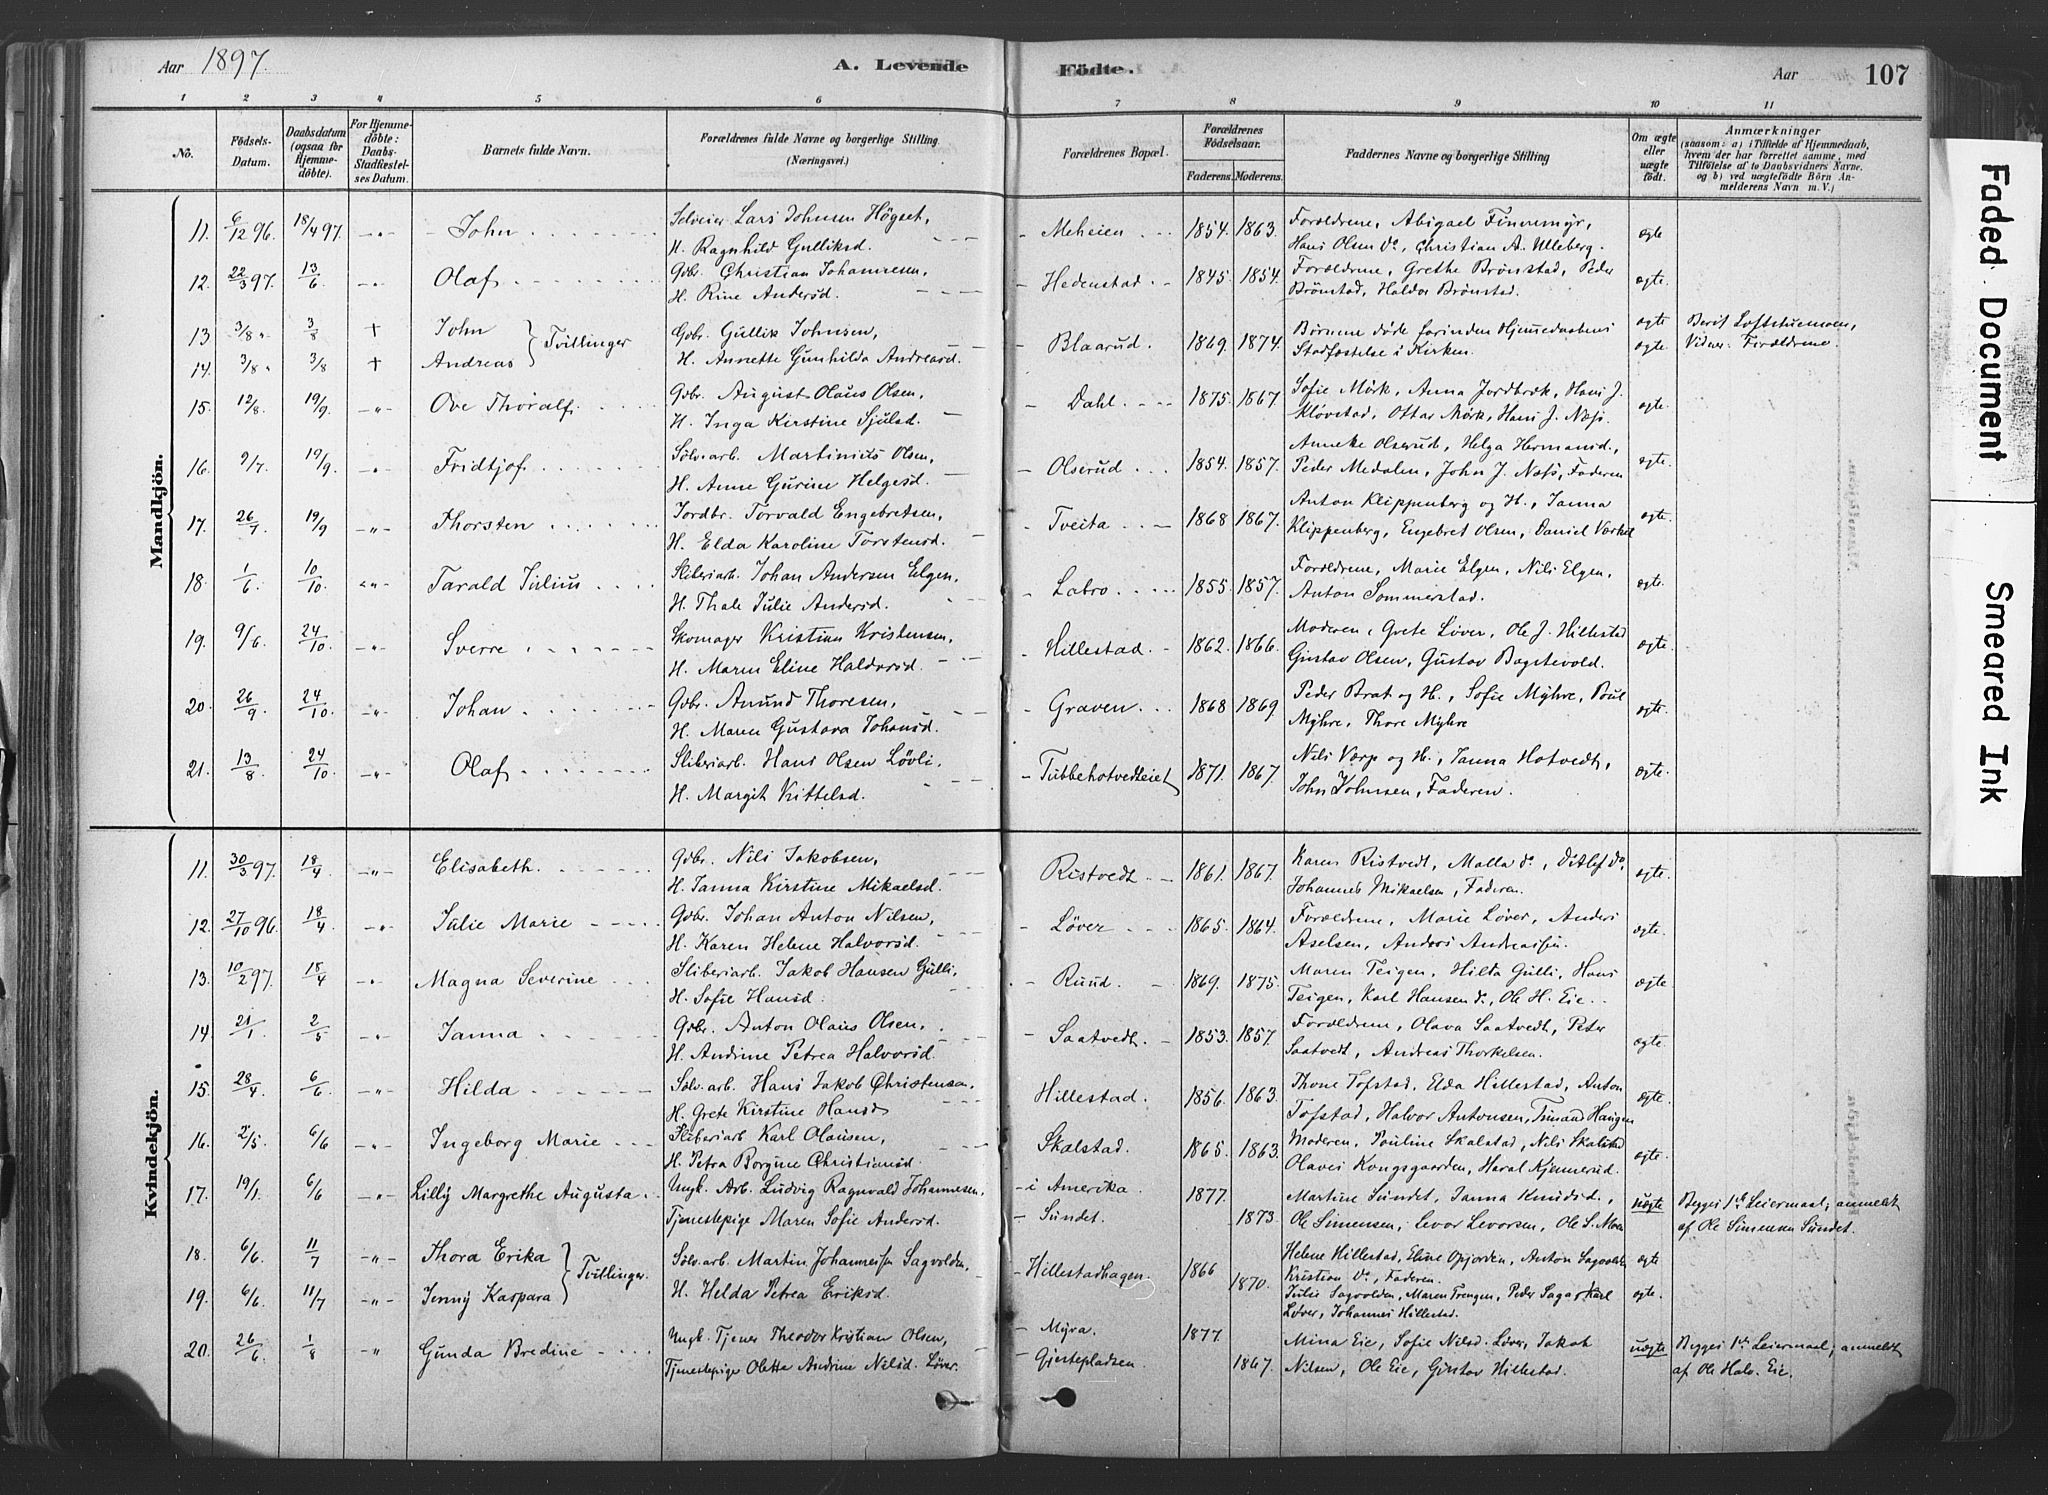 Aar 1897. A. Levende Födte. Aar 107
1 2 3 4 5 6 7 8 9 10 11
No.
Födsels-Datum.
Daabsdatum (ogsaa for Hjemme-döbte).
For Hjemme-döbte: Daabs-Stadfæstel-ses Datum.
Barnets fulde Navn.
Forældrenes fulde Navne og borgerlige Stilling (Næringsvei.)
Forældrenes Bopæl.
Forældrenes Födselsaar.
Faderens. Moderens.
Faddernes Navne og borgerlige Stilling
Om ægte eller uægte födt.
Anmærkninger
(saasom: a) i Tilfælde af Hjemmedaab, hvem der har forrettet samme, med Tilföielse af to Daabsvidners Navne, og b) ved uægtefödte Börn An-melderens Navn m. V.)
Mandkjön.
11. 6/12 96. 18/4 97. -"- John Selveier Lars Johnsen Högset, - Meheien 1854. 1863. Forældrene, Abigael Finnemyr, ægte
H. Ragnhild Gulliksd. Hans Olsen do, Christian A. Ulleberg.
12. 22/3 97. 13/6 -"- Olaf Gdbr. Christian Johannesen, - Hedenstad 1845. 1854. Forældrene, Grethe Brønstad, Peder ægte.
H. Rine Andersd. Brønstad, Haldor Brønstad.
13 3/8 " 3/8 + John } Tvillinger Gdbr. Gullik Johnsen, - Blaarud. 1869. 1874. Børnene døde forinden Hjemmedaabens ægte Berit Loftstuemoen,
14. 3/8 " 3/8 + Andreas H. Annette Gunhilda Andreasd. Stadfæstelse i Kirken. ægte Vidner: Forældrene.
15. 12/8. 19/9. -"- Ove Thoralf Gdbr. August Olaus Olsen, - Dahl. 1875. 1867. Sofie Mörk, Anna Jordbræk, Hans J. ægte.
H. Inga Kirstine Sjulsd. Kløvstad, Ottar Mörk, Hans J. Næss.
16. 9/7. 19/9. -"- Fridtjof Sølvarb. Martinius Olsen, - Olserud 1854. 1857. Anneke Olserud, Helga Hermansd. ægte.
H. Anne Gurine Helgesd. Peder Medalen, John J. Næss, Faderen
17. 26/7 19/9 -"- Thorsten Jordbr. Torvald Engebretsen, - Tveita 1868 1867. Anton Klippenberg og H., Janna ægte.
H. Elda Karoline Torstensd. Klippenberg, Engebret Olsen, Daniel
18. 1/6. 10/10. -"- Tarald Julius Sliberiarb. Johan Andersen Elgen, - Labro 1855. 1857. Forældrene, Marie Elgen, Nils Elgen, ægte.
H. Thale Julie Andersd. Anton Sommerstad.
19. 9/6. 24/10. -"- Sverre Skomager Kristian Kristensen, - Hillestad. 1862. 1866. Moderen, Grete Løver, Ole J. Hillestad ægte.
H. Maren Eline Haldorsd. Gustav Olsen, Gustav Bagstevold.
20. 26/9 24/10. -"- Johan Gdbr. Anund Thoresen, - Graven 1868 1869. Peder Brat og H., Sofie Myhre, Poul ægte.
H. Maren Gustava Johansd. Myhre, Thore Myhre
21. 13/8. 24/10. -"- Olaf Sliberiarb. Hans Olsen Løvli, - Tubbehotvedteiet 1871. 1867. Nils Varp og H., Janna Hotvedt, ægte.
H. Margit Kittelsd. John Johnsen, Faderen.
Kvindekjön.
11. 30/3 97. 18/4 -"- Elisabeth. Gdbr. Nils Jakobsen, Ristvedt 1861. 1867. Karen Ristvedt, Malla do, Ditlef do, ægte.
H. Janna Kirstine Mikaelsd. Johannes Mikaelsen, Faderen.
12. 27/10 96. 18/4 -"- Julie Marie Gdbr. Johan Anton Nilsen, - Løver 1865. 1864. Forældrene, Marie Løver, Anders ægte.
H. Karen Helene Halvorsd. Aselsen, Anders Andreassen.
13. 10/2 97. 18/4 -"- Magna Severine Sliberiarb. Jakob Hansen Gulli, - Ruud. 1869. 1875. Maren Teigen, Hilta Gulli, Hans ægte
H. Sofie Hansd. Teigen, Karl Hansen do, Ole H. Eie.
14. 21/1 2/5 -"- Janna Gdbr. Anton Olaus Olsen, - Saatvedt. 1853. 1857. Forældrene, Olava Saatvedt, Peter ægte.
H. Andrine Petrea Halvorsd. Saatvedt, Andreas Thorkelsen.
15. 28/4. 6/6 -"- Hilda Sølvarb. Hans Jakob Christensen, Hillestad. 1856. 1863. Thone Tofstad, Elda Hillestad, Anton ægte.
H. Grete Kirstine Hansd. Tofstad, Halvor Antonsen, Haugen
16. 2/5. 6/6 -"- Ingeborg Marie Sliberiarb Karl Olausen, Skalstad. 1865. 1863. Moderen, Pauline Skalstad, Nils Skalstad ægte.
H. Petra Borgine Christiansd. Olaves Kongsgaarden, Haral Kjennerud.
17. 19/1. 6/6 -"- Lilly Margrethe Augusta Ungk. Arb. Ludvig Ragnvald Johannesen, - i Amerika. 1877. Martine Sundet, Janna Knudsd., uægte Begges 1ste Leiermaal; anmeldt
Tjenestepige Maren Sofie Andersd. - Sundet. 1873. Ole Simensen, Levor Levorsen, Ole S. Moen af Ole Simensen Sundet.
18. 6/6. 11/7 -"- Thora Erika } Tvillinger. Sølvarb. Martin Johannessen Sagvolden, - Hillestadhagen 1866 Helene Hillestad, Eline Opjorden, Anton Sagvolden ægte
Kristian do, Faderen.
19. 6/6. 11/7 -"- Jenny Kaspara H. Helda Petrea Eriksd. 1870. Julie Sagvolden, Maren Trengen, Peder Saga, Karl ægte.
Løver, Johannes Hillestad.
20. 26/6. 1/8 -"- Gunda Bredine Ungk. Tjener Theodor Kristian Olsen, - Myra. 1877 Mina Eie, Sofie Nilsd. Løver, Jakob uægte Begges 1ste Leiermaal; anmeldt
Tjenestepige Olette Andrine Nilsd. Løver. - Gjestepladsen 1867. Nilsen, Ole Eie, Gustav Hillestad. af Ole Halv. Eie.
Faded Document
Smeared Ink